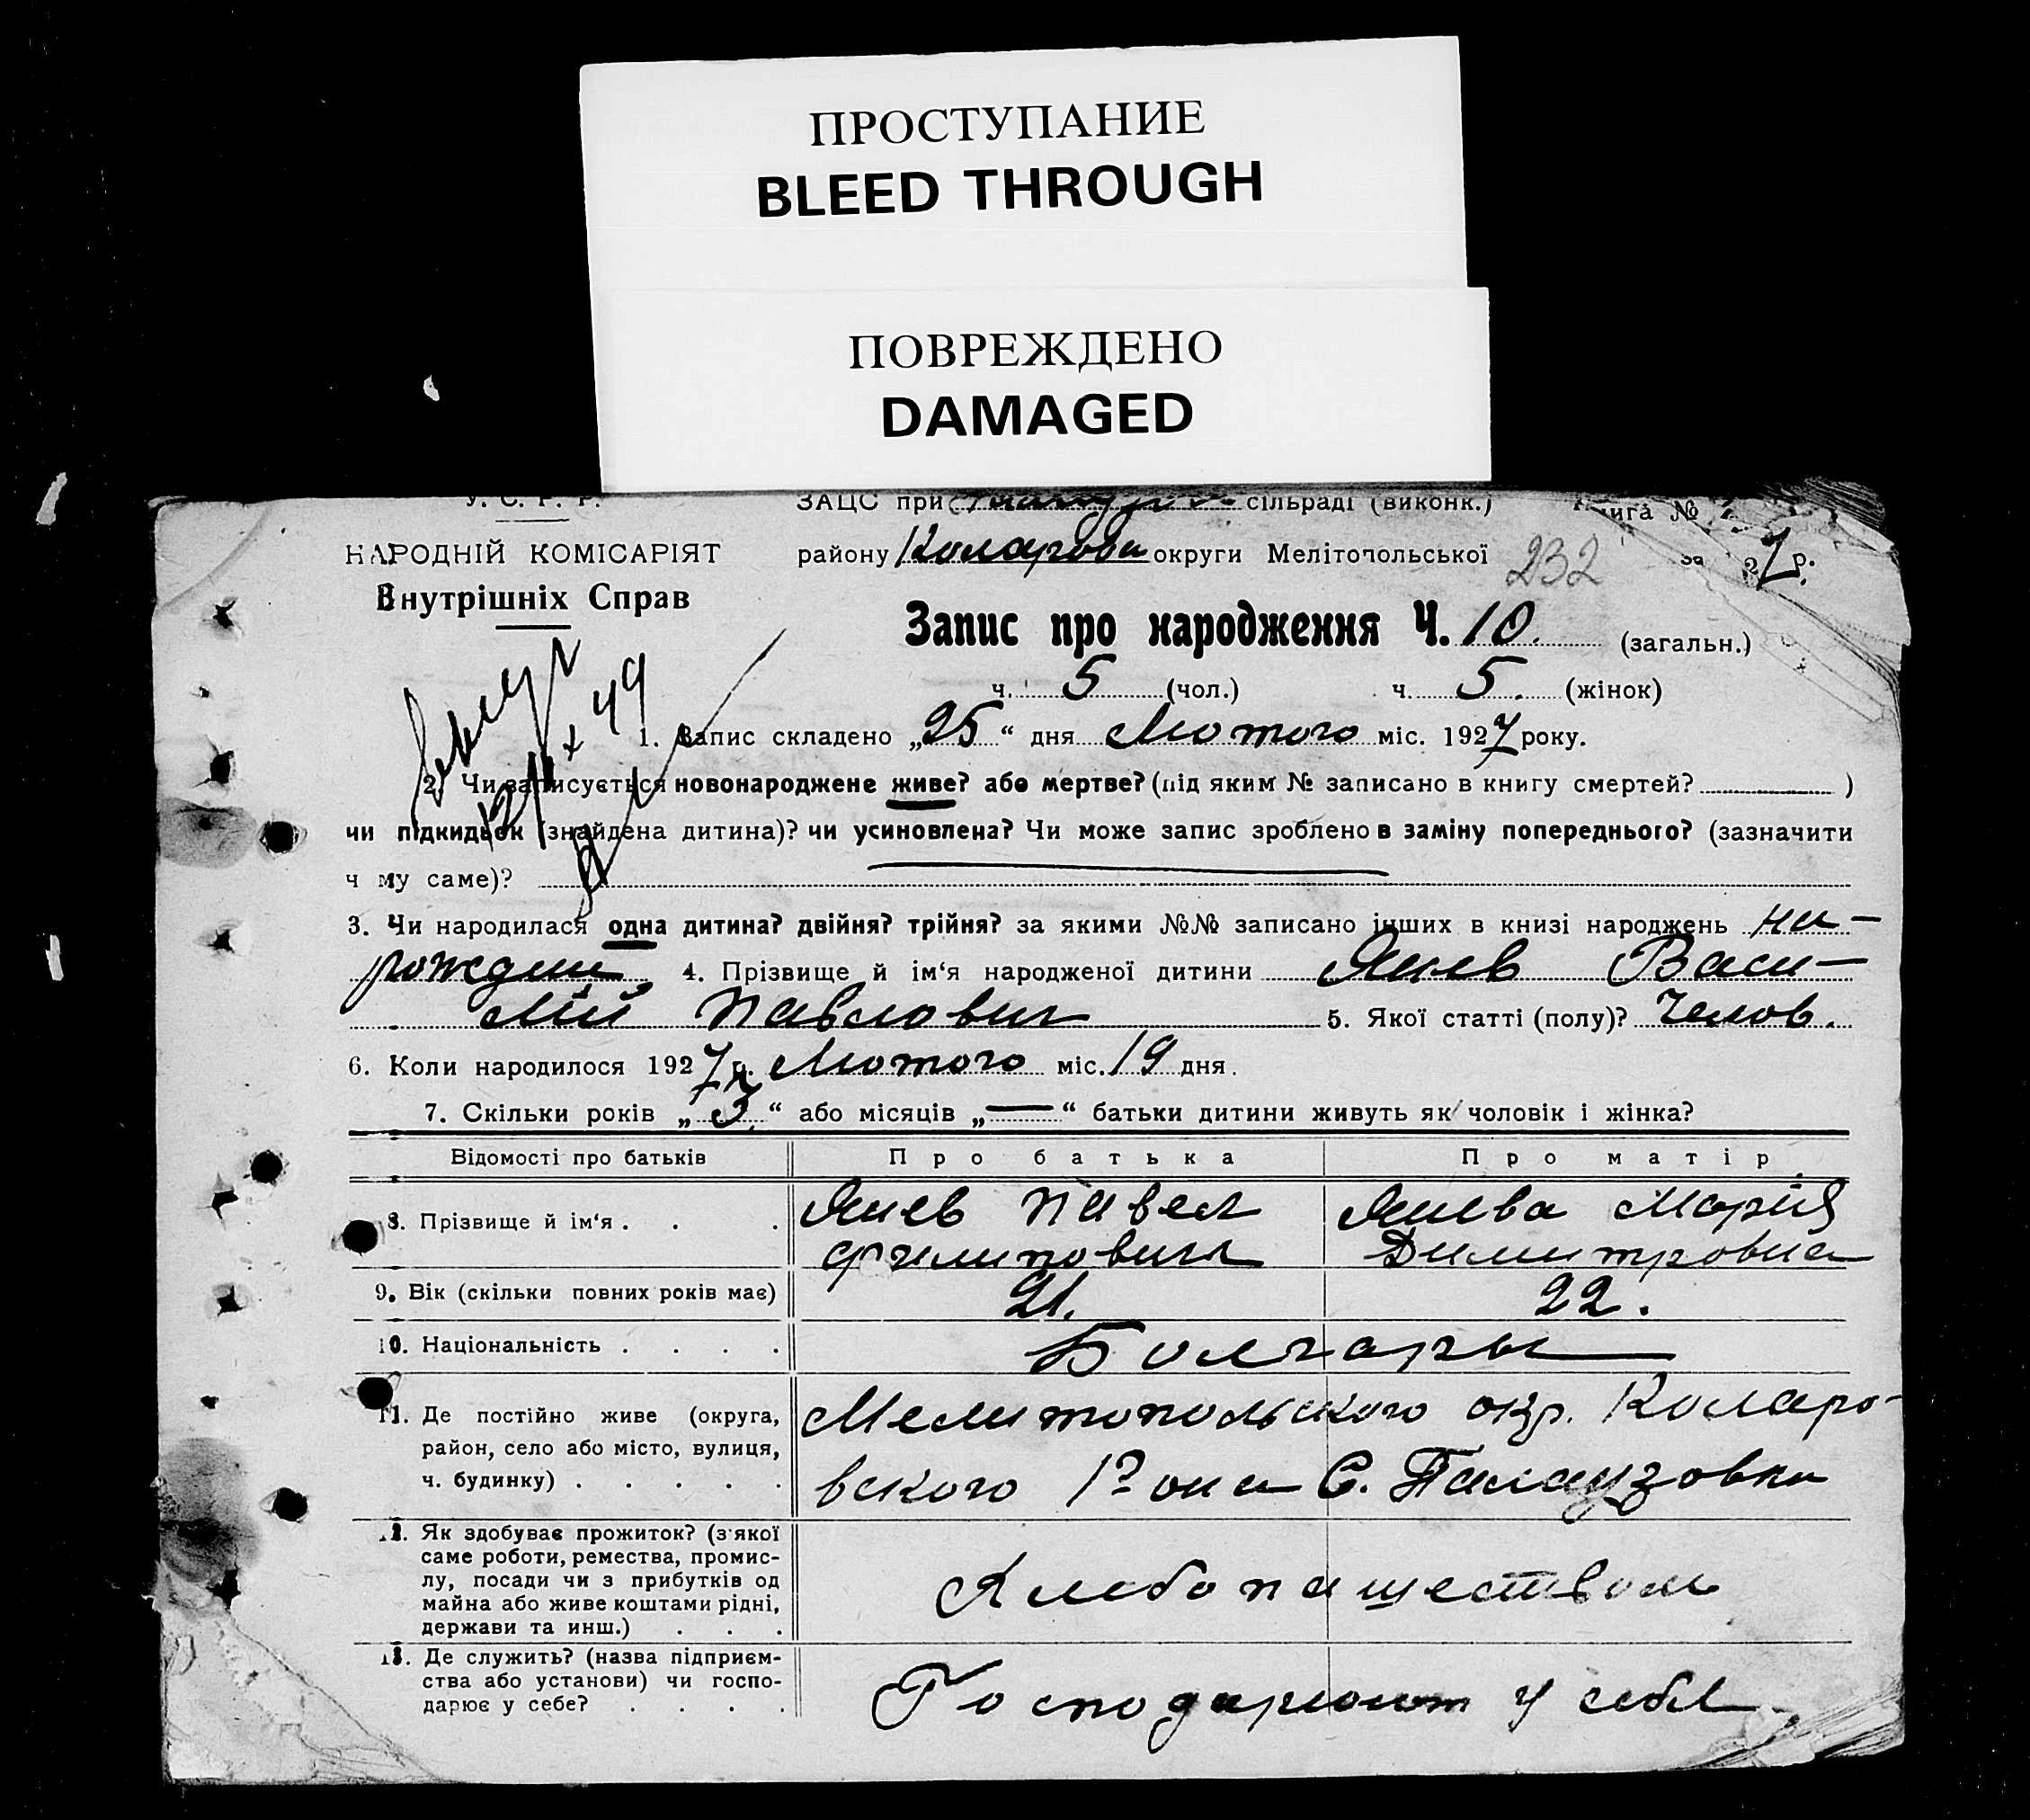 ПРОСТУПАНИЕ
BLEED THROUGH
ПОВРЕЖДЕНО
DAMAGED
У. С. Р. Р. ЗАЦС при сільраді (виконк.) Книга №
НАРОДНІЙ КОМІСАРІЯТ району Коларова округи Мелітопольської 232 за 27 р.
Внутрішніх Справ
Запис про народження Ч. 10. (загальн.)
ч. 5 (чол.) ч. 5. (жінок)
1. Запис складено „25“ дня Лютого міс. 1927 року.
2. Чи записується новонароджене живе? або мертве? (під яким № записано в книгу смертей? )
чи підкидьок (знайдена дитина)? чи усиновлена? Чи може запис зроблено в заміну попереднього? (зазначити
ч му саме)?
3. Чи народилася одна дитина? двійня? трійня? за якими №№ записано інших в книзі народжень
4. Прізвище й ім‘я народженої дитини Янев Васи-
лій Павлович 5. Якої статті (полу)? Челов.
6. Коли народилося 1927 р. Лютого міс. 19 дня.
7. Скільки років „3“ або місяців „—“ батьки дитини живуть як чоловік і жінка?
Відомості про батьків Про батька Про матір
8. Прізвище й ім‘я . . . Янев Павел Янева Мария
Филипович Димитровна
9. Вік (скільки повних років має) 21. 22.
10. Національність . . . . Болгары
11. Де постійно живе (округа, Мелитопольского окр. Коларо-
район, село або місто, вулиця,
ч. будинку) . . . . . вского Р-она С. Палаузовки
12. Як здобуває прожиток? (з якої
саме роботи, ремества, промис-
лу, посади чи з прибутків од
майна або живе коштами рідні, Хлебопашеством
держави та инш.) . . .
13. Де служить? (назва підприєм-
ства або установи) чи госпо- Господарюют у себе
дарює у себе? . . . .